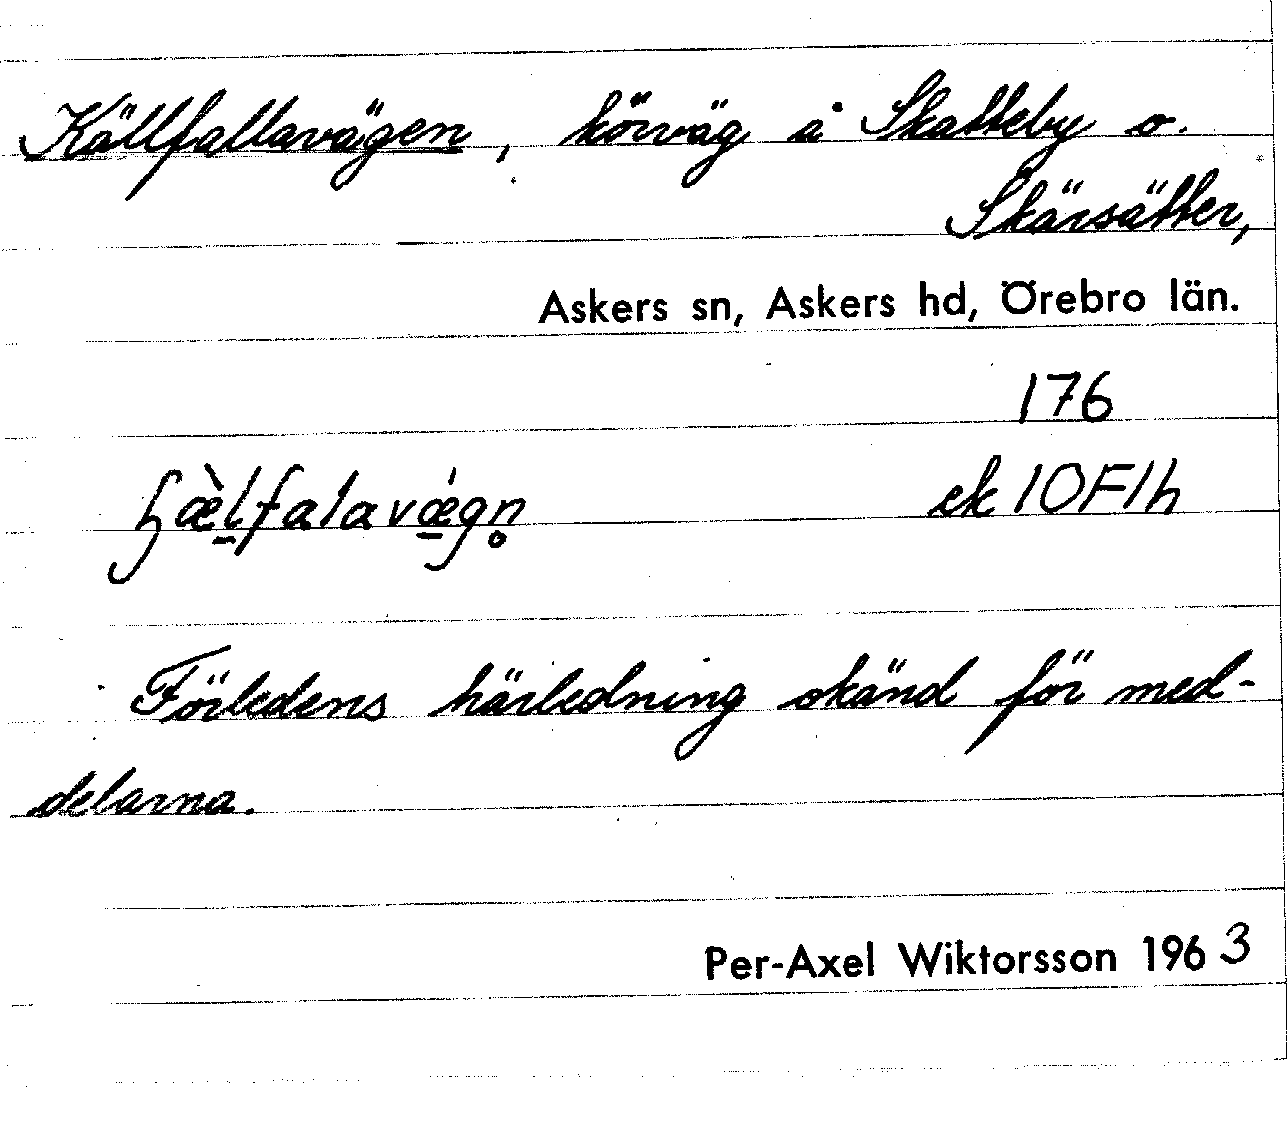 Källfallavägen, körväg å Skatteby o.
Skärsätter,
Askers sn, Askers hd, Örebro län.
176
ek 10F1h
Förledens härledning okänd för med-
delarna.
Per-Axel Wiktorsson 1963